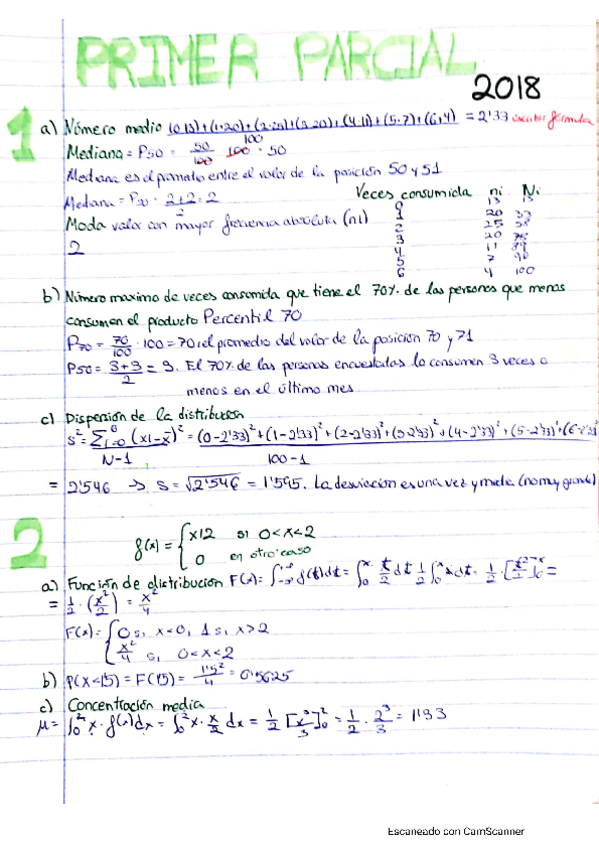 PRIMER PARCIAL
2018
1
a) Número medio (0·13)+(1·20)+(2·25)+(3·20)+(4·11)+(5·7)+(6·4) = 2'33 escribir fórmula
100
Mediana = P50 = 50/100 · 100 = 50
Mediana es el promedio entre el valor de la posición 50 y 51
Mediana = P50 = 2+2/2 = 2
Moda valor con mayor frecuencia absoluta (ni)
2
Veces consumida ni Ni
0 13 13
1 20 33
2 25 58
3 20 78
4 11 89
5 7 96
6 4 100
b) Número maximo de veces consumida que tiene el 70% de las personas que menos
consumen el producto Percentil 70
P70 = 70/100 · 100 = 70 → el promedio del valor de la posicion 70 y 71
P50 = 3+3/2 = 3. El 70% de las personas encuestadas lo consumen 3 veces o
menos en el último mes
c) Dispersión de la distribución
s² = Σ (xi-x̄)² / N-1 = (0-2'33)²+(1-2'33)²+(2-2'33)²+(3-2'33)²+(4-2'33)²+(5-2'33)²+(6-2'33)
100-1
= 2'546 → s = √2'546 = 1'595. La desviación es una vez y media (no muy grande)
2
f(x) = { x/2 si 0<x<2
0 en otro caso
a) Función de distribución F(x) = ∫ f(t)dt = ∫ t/2 dt = 1/2 ∫ t dt = 1/2 · [t²/2] =
= 1/2 · (x²/2) = x²/4
F(x) = { 0 si x<0, 1 si x>2
x²/4 si 0<x<2
b) P(x<1'5) = F(1'5) = 1'5²/4 = 0'5625
c) Concentración media
μ = ∫₀² x · f(x)dx = ∫₀² x · x/2 dx = 1/2 [x³/3]₀² = 1/2 · 2³/3 = 1'33
Escaneado con CamScanner